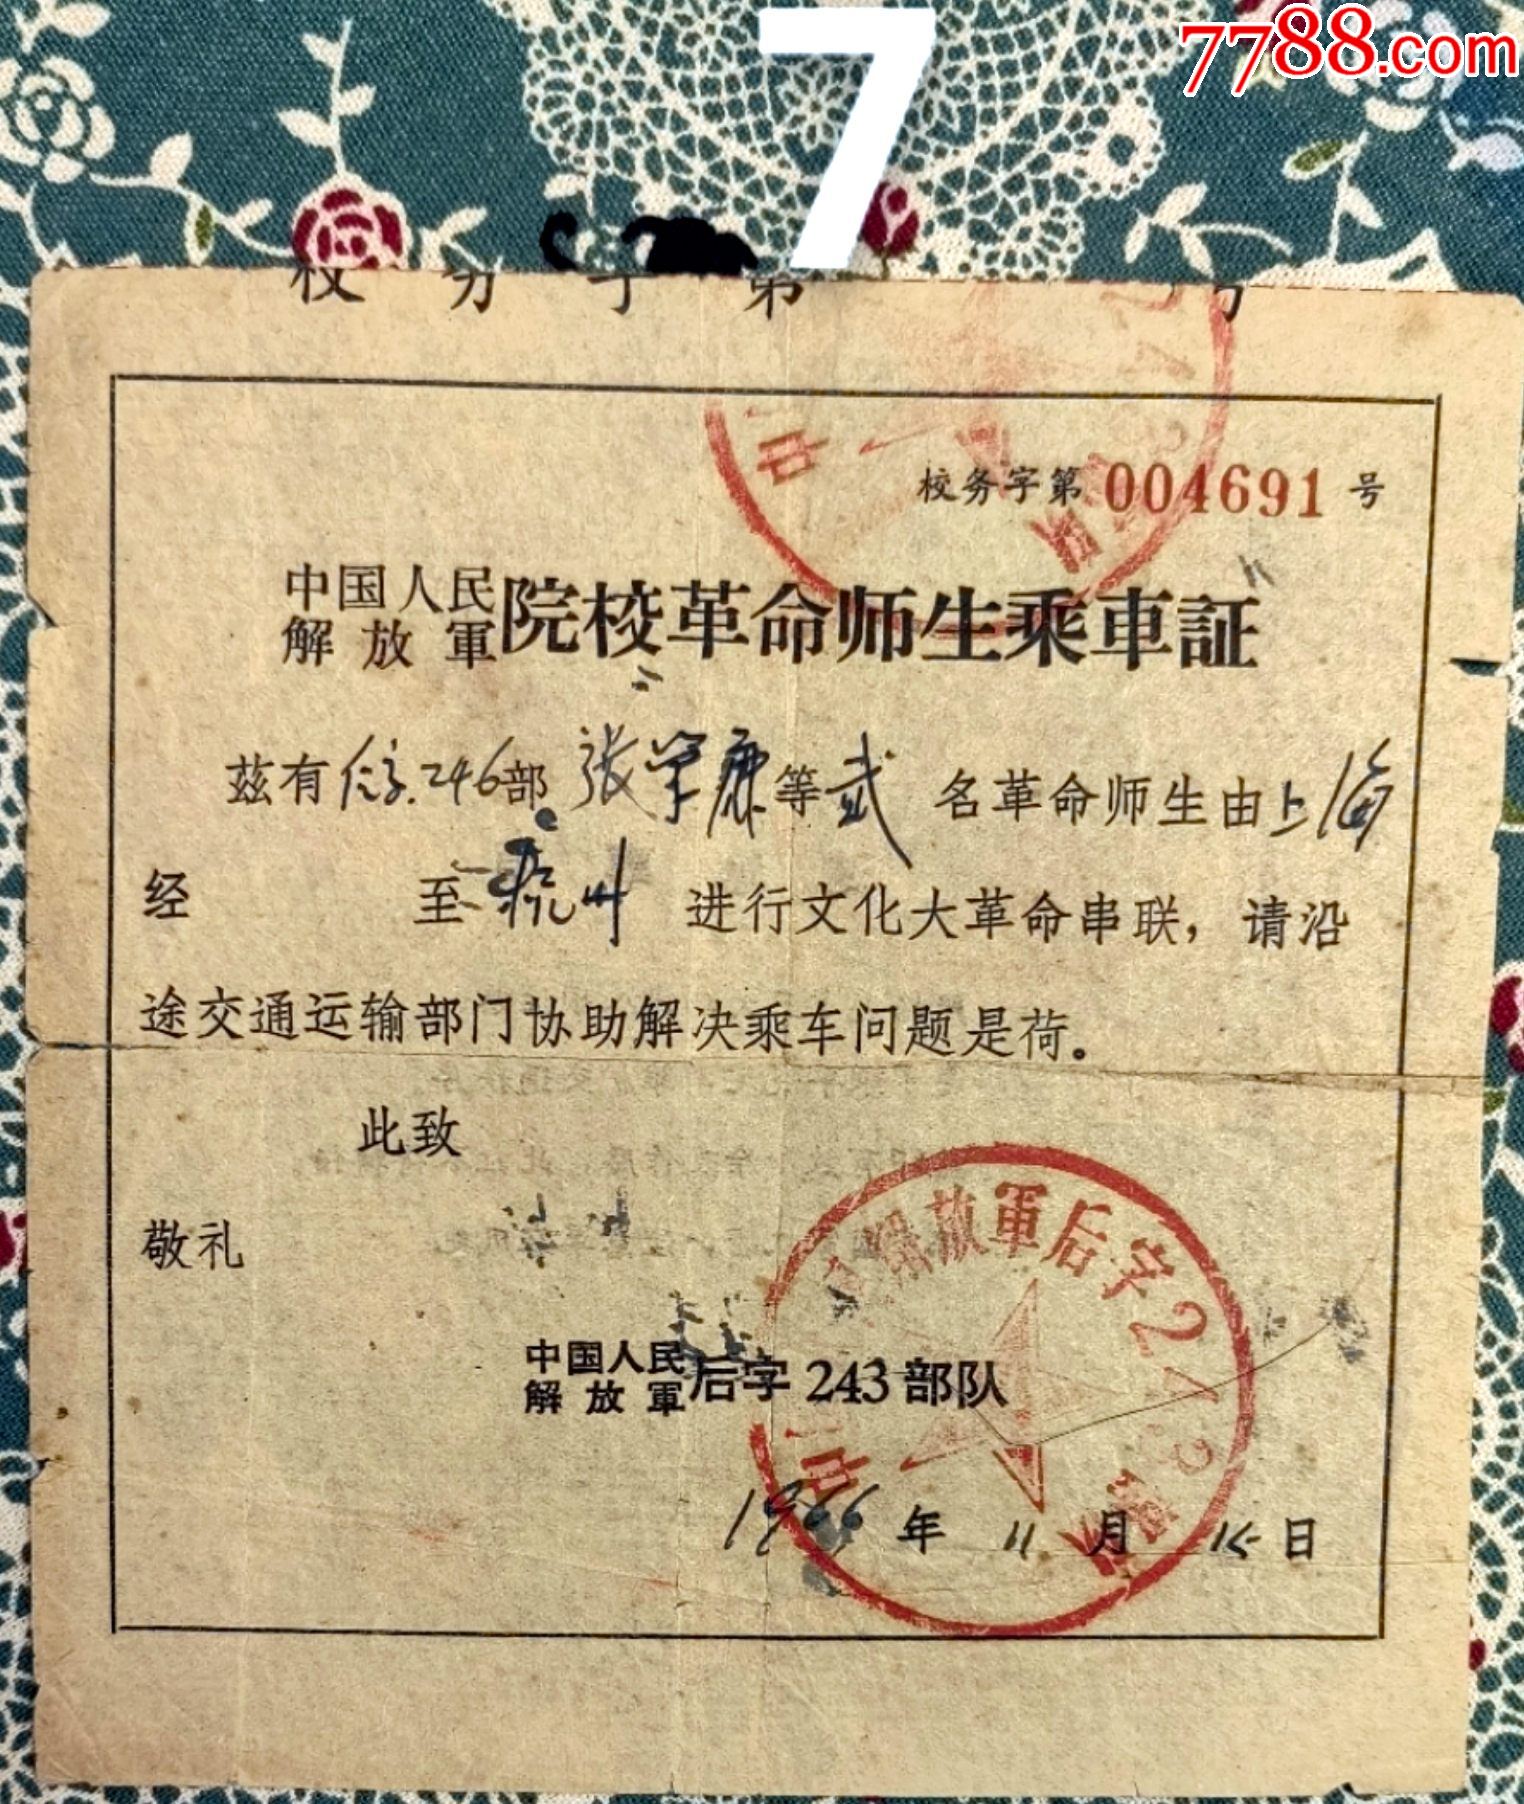 7788.com
7
校务字第 号
校务字第 004691 号
中国人民
解放軍
院校革命师生乘車証
兹有信字.246部 张学康等贰 名革命师生由上海
经 至杭州 进行文化大革命串联，请沿
途交通运输部门协助解决乘车问题是荷。
此致
敬礼
中国人民
解放軍
后字 243 部队
1966 年 11 月 15 日
解放軍后字243